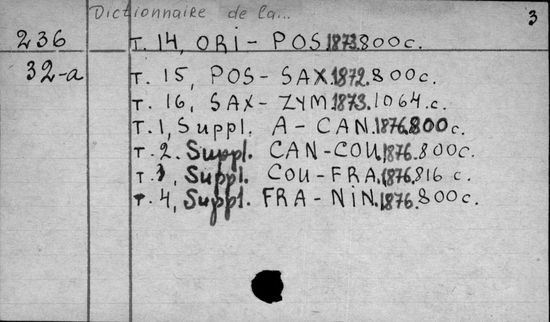 Dictionnaire de la... 3
236 T. 14, ORI - POS.1873.800c.
32-a T. 15, POS - SAX.1872.800c.
T. 16, SAX - ZYM.1873.1064.c.
T. 1, Suppl. A - CAN.1876.800c.
T. 2. Suppl. CAN-COU.1876.800c.
T. 3, Suppl. COU-FRA.1876.816 c.
T. 4, Suppl. FRA-NiN.1876.800c.